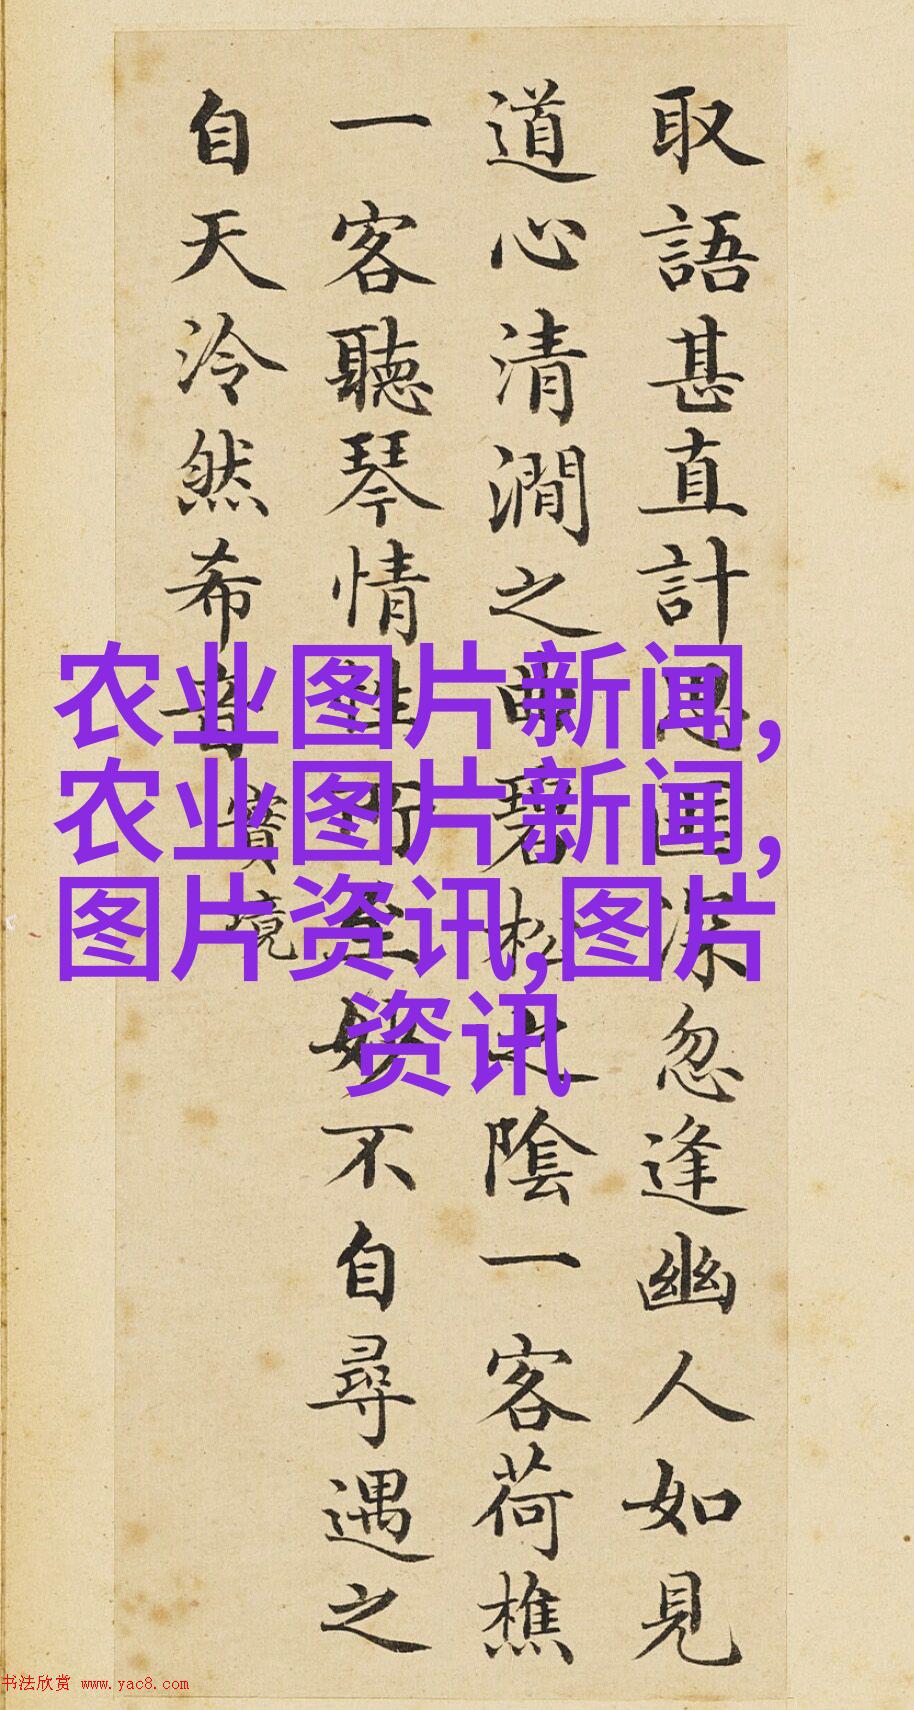 取語甚直計思匪深忽逢幽人如見
道心清澗之曲碧松之陰一客荷樵
一客聽琴情性所至妙不自尋遇之
自天泠然希音
實境
农业图片新闻,
农业图片新闻,
图片资讯,图片
资讯
书法欣赏 www.yac8.com